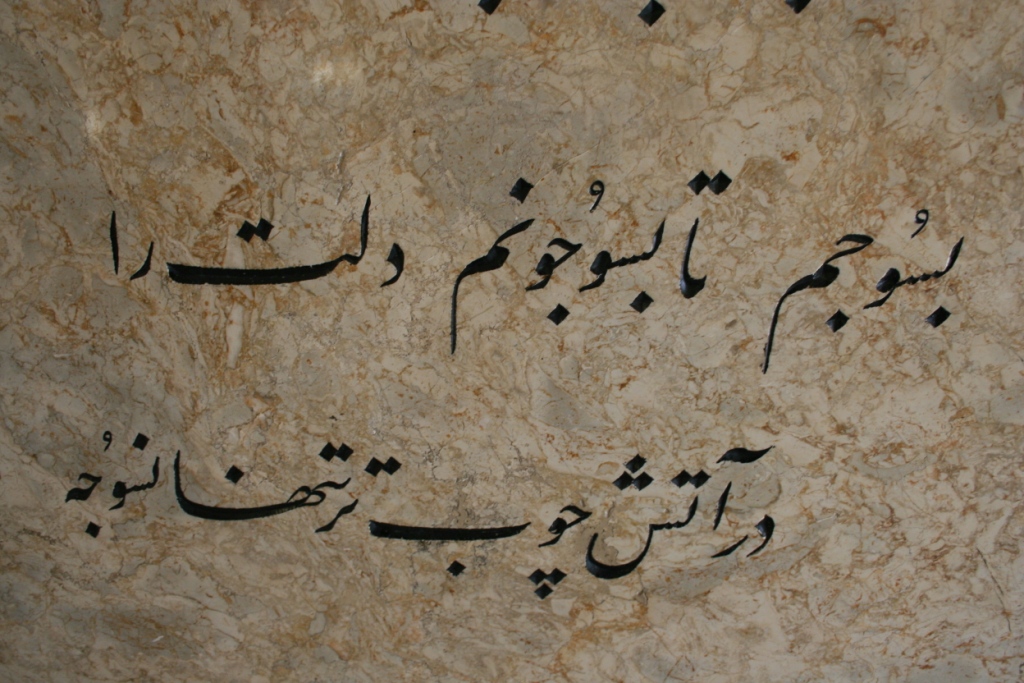 بسُوجم تا بسوُجونم دلت را
در آتش چوب تر تنها نسوُجه